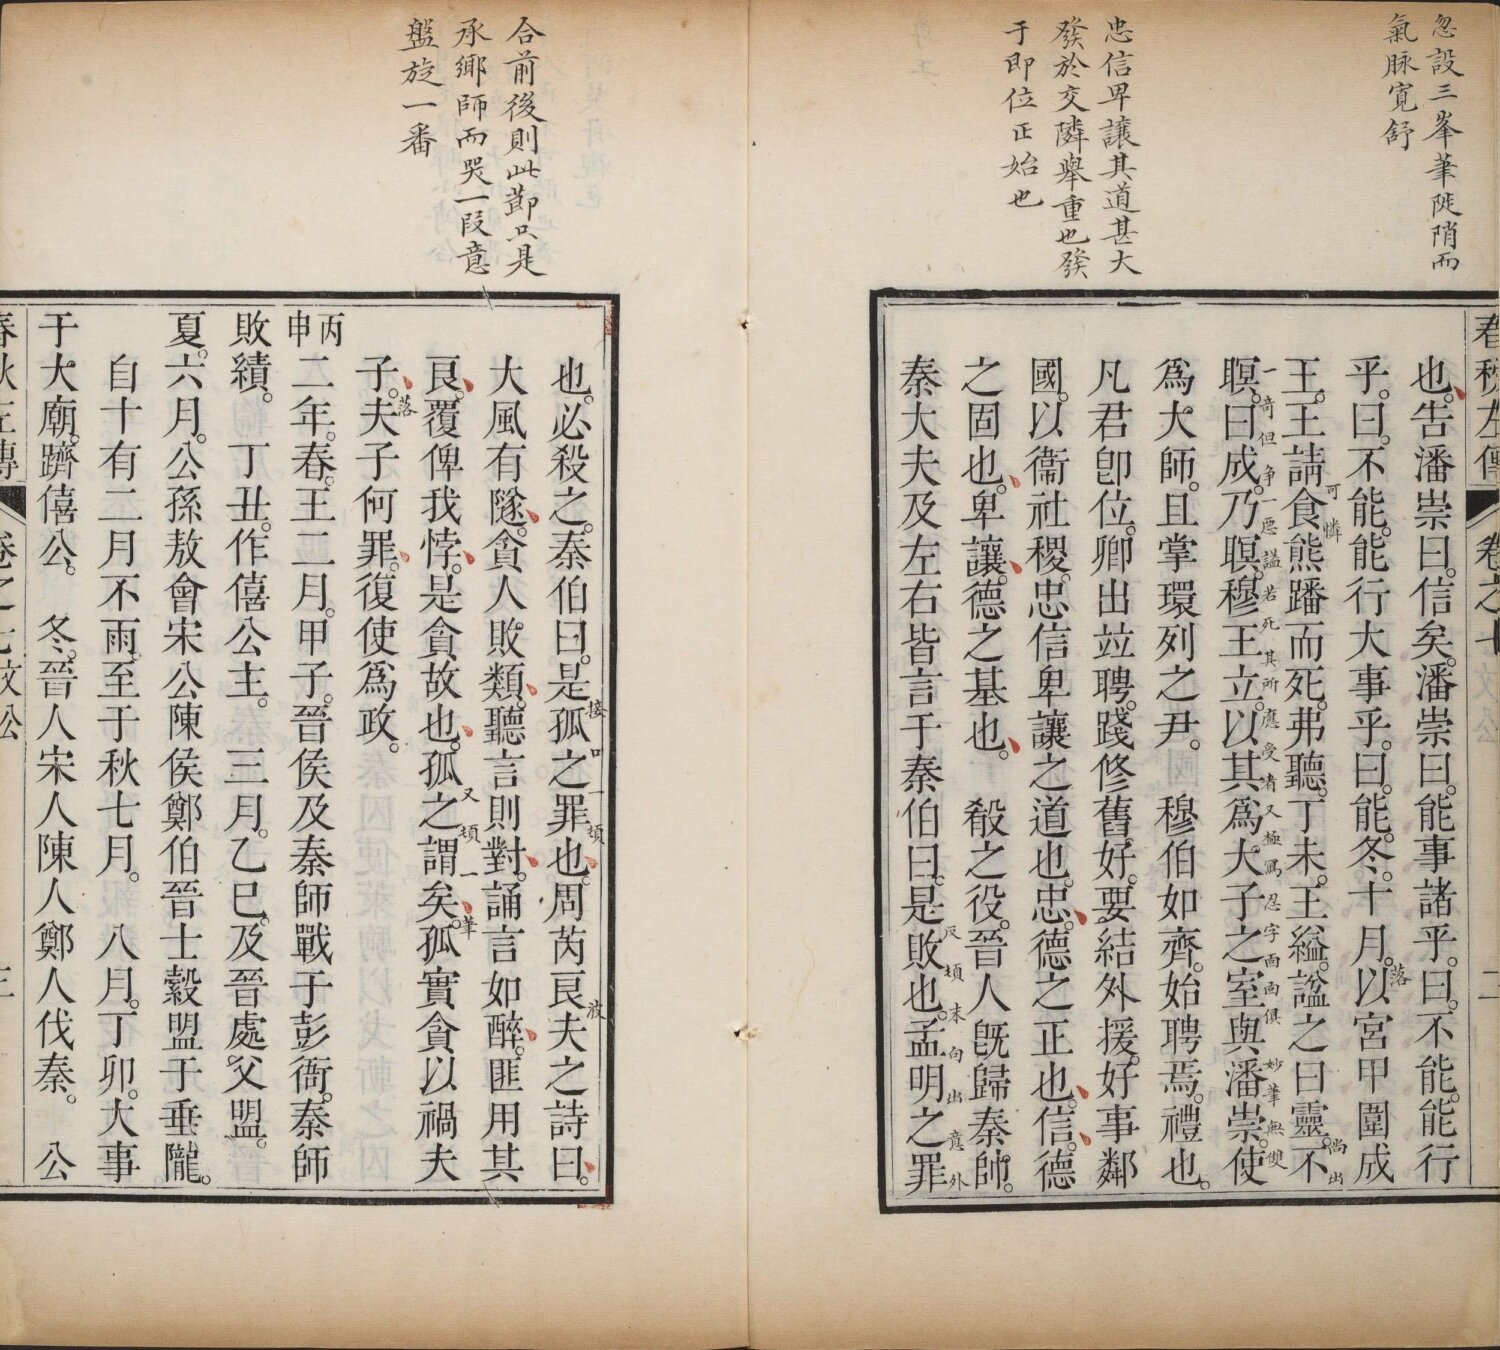 忽設三峯筆陡陗而
氣脉寬舒
忠信卑讓其道甚大
發於交隣舉重也發
于即位正始也
春秋左傳 卷之七 文公 二
也。告潘崇曰。信矣。潘崇曰。能事諸乎。曰。不能。能行
乎。曰。不能。能行大事乎。曰。能。冬。十月。以宮甲圍成
落
王。王請食熊蹯而死。弗聽。丁未。王縊。諡之曰靈。不
可憐
尚出
瞑。曰成。乃瞑。穆王立。以其爲大子之室與潘崇。使
一奇但争一惡諡若死其所應受諸又極寫忍字面面俱 妙筆無雙
爲大師。且掌環列之尹。 穆伯如齊。始聘焉。禮也。
凡君卽位。卿出竝聘。踐修舊好。要結外援。好事鄰
國。以衞社稷。忠信卑讓之道也。忠。德之正也。信。德
之固也。卑讓。德之基也。 殽之役。晉人旣歸秦帥。
秦大夫及左右皆言于秦伯曰。是敗也。孟明之罪
反頓末句出意外
合前後則此節只是
承鄉師而哭一段意
盤旋一番
也。必殺之。秦伯曰。是孤之罪也。周芮良夫之詩曰。
接口一頓 波
大風有隧。貪人敗類。聽言則對。誦言如醉。匪用其
良。覆俾我悖。是貪故也。孤之謂矣。孤實貪以禍夫
又頓一筆
子。夫子何罪。復使爲政。
落
丙申二年。春。王二月。甲子。晉侯及秦師戰于彭衙。秦師
敗績。 丁丑。作僖公主。 三月。乙巳。及晉處父盟。
夏。六月。公孫敖會宋公陳侯鄭伯晉士縠盟于垂隴。
自十有二月不雨。至于秋七月。 八月。丁卯。大事
于大廟。躋僖公。 冬。晉人宋人陳人鄭人伐秦。 公
春秋左傳 卷之七 文公 三